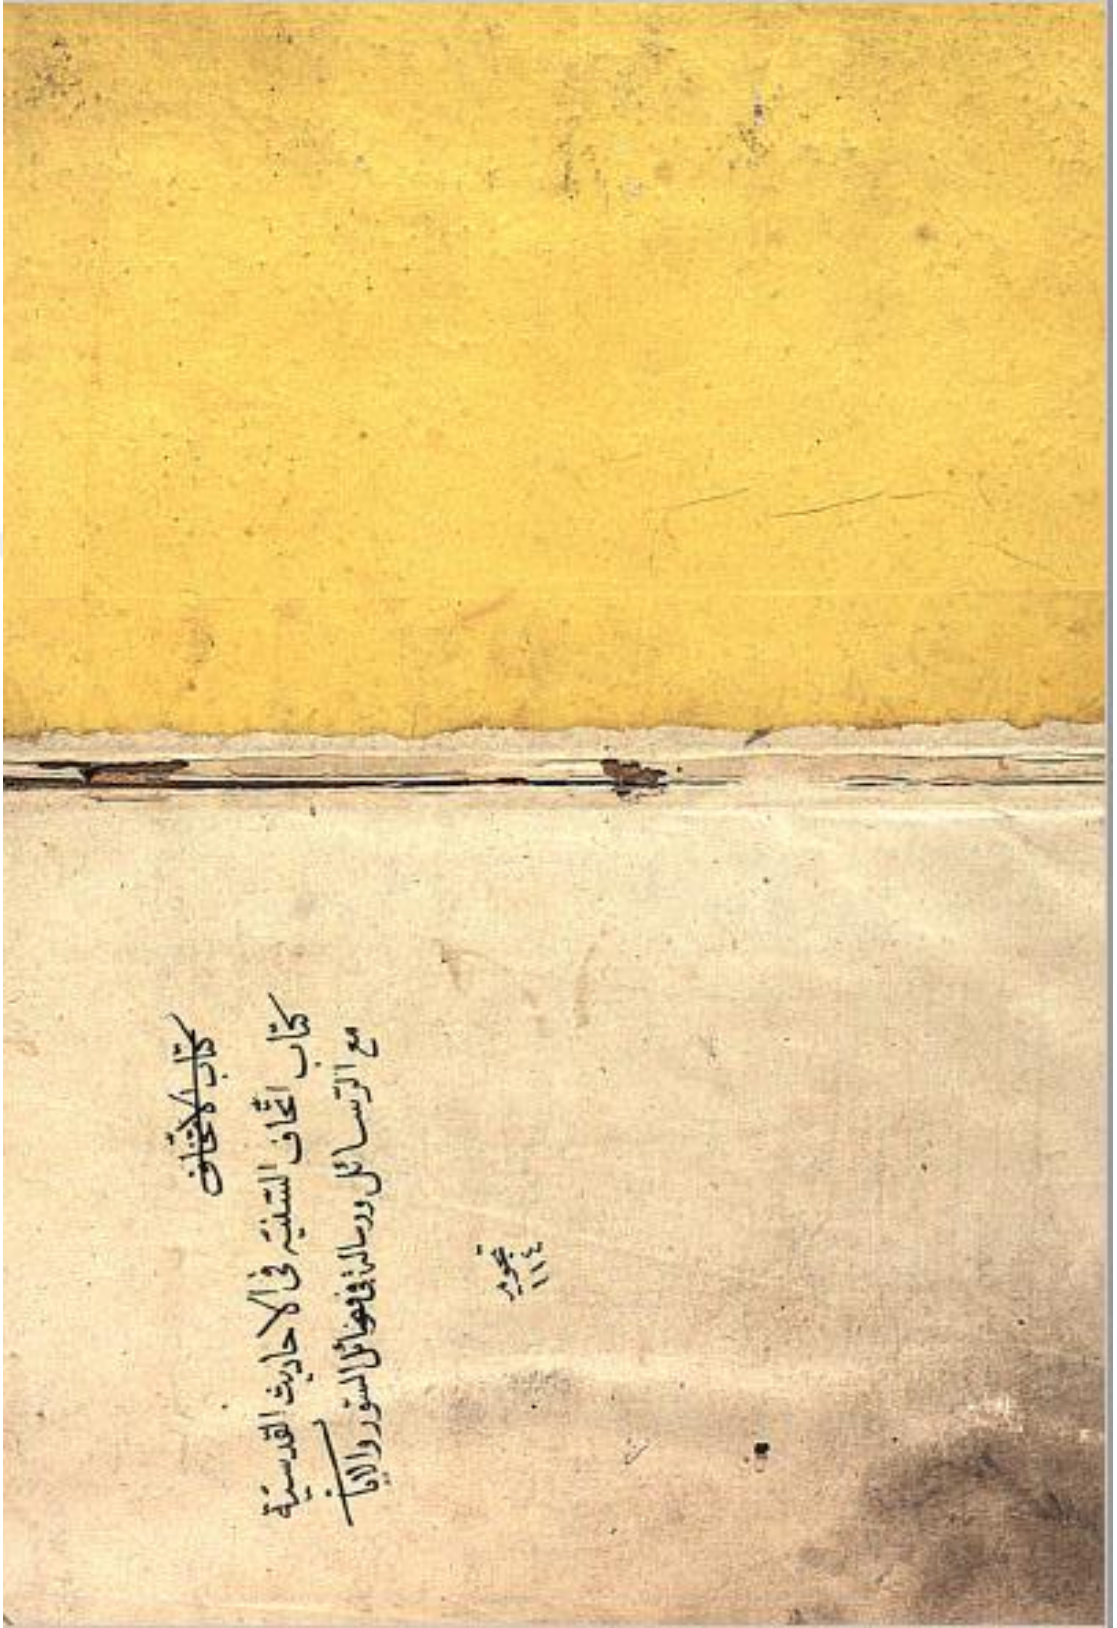 كتاب الاتحاف
كتاب اتحاف السنيه فى الاحاديث القدسية
مع الرسائل ورسالة فى فضائل السور والايات
١١٤